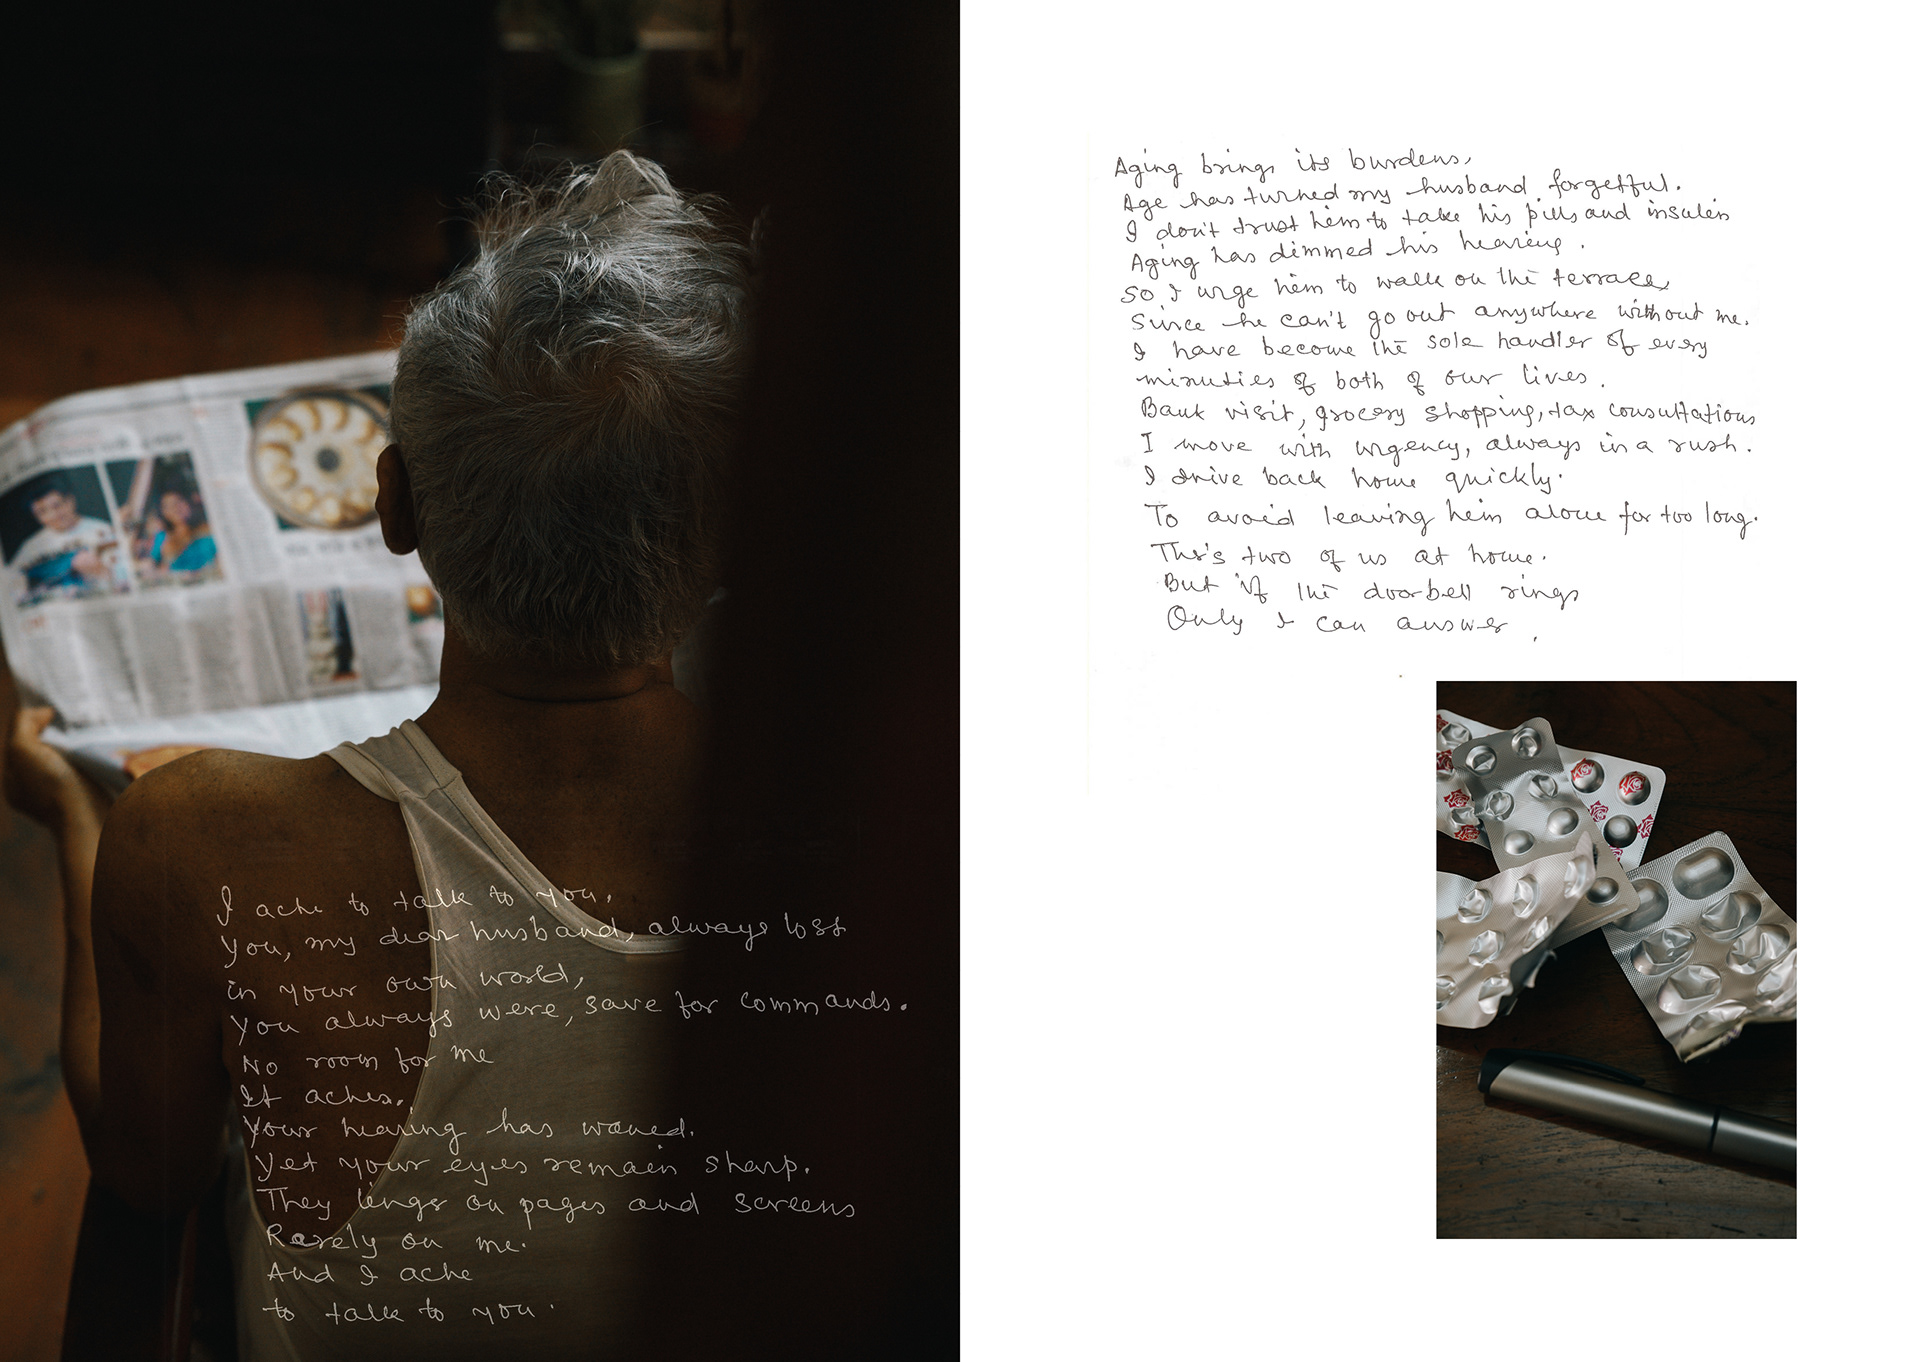 I ache to talk to you.
You, my dear husband, always lost
in your own world,
You always were, save for commands.
No room for me
It aches.
Your hearing has waned.
Yet your eyes remain sharp.
They linger on pages and screens
Rarely on me.
And I ache
to talk to you.
Aging brings its burdens,
Age has turned my husband forgetful.
I don't trust him to take his pills and insulin
Aging has dimmed his hearing.
So I urge him to walk on the terrace,
Since he can't go out anywhere without me.
I have become the sole handler of every
minuties of both of our lives.
Bank visit, grocery shopping, tax consultations
I move with urgency, always in a rush.
I drive back home quickly.
To avoid leaving him alone for too long.
Ther's two of us at home.
But if the doorbell rings
Only I can answer.